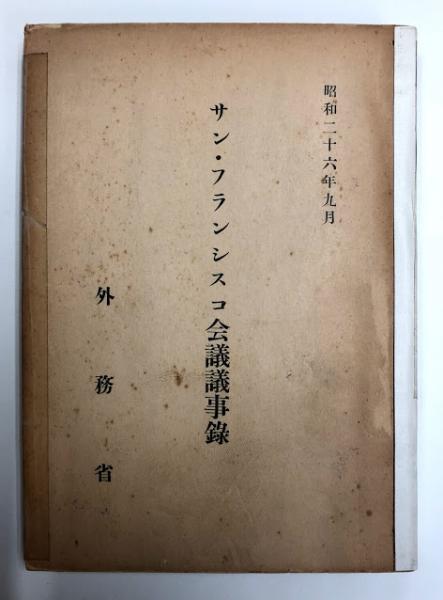 昭和二十六年九月
サン・フランシスコ会議議事錄
外務省